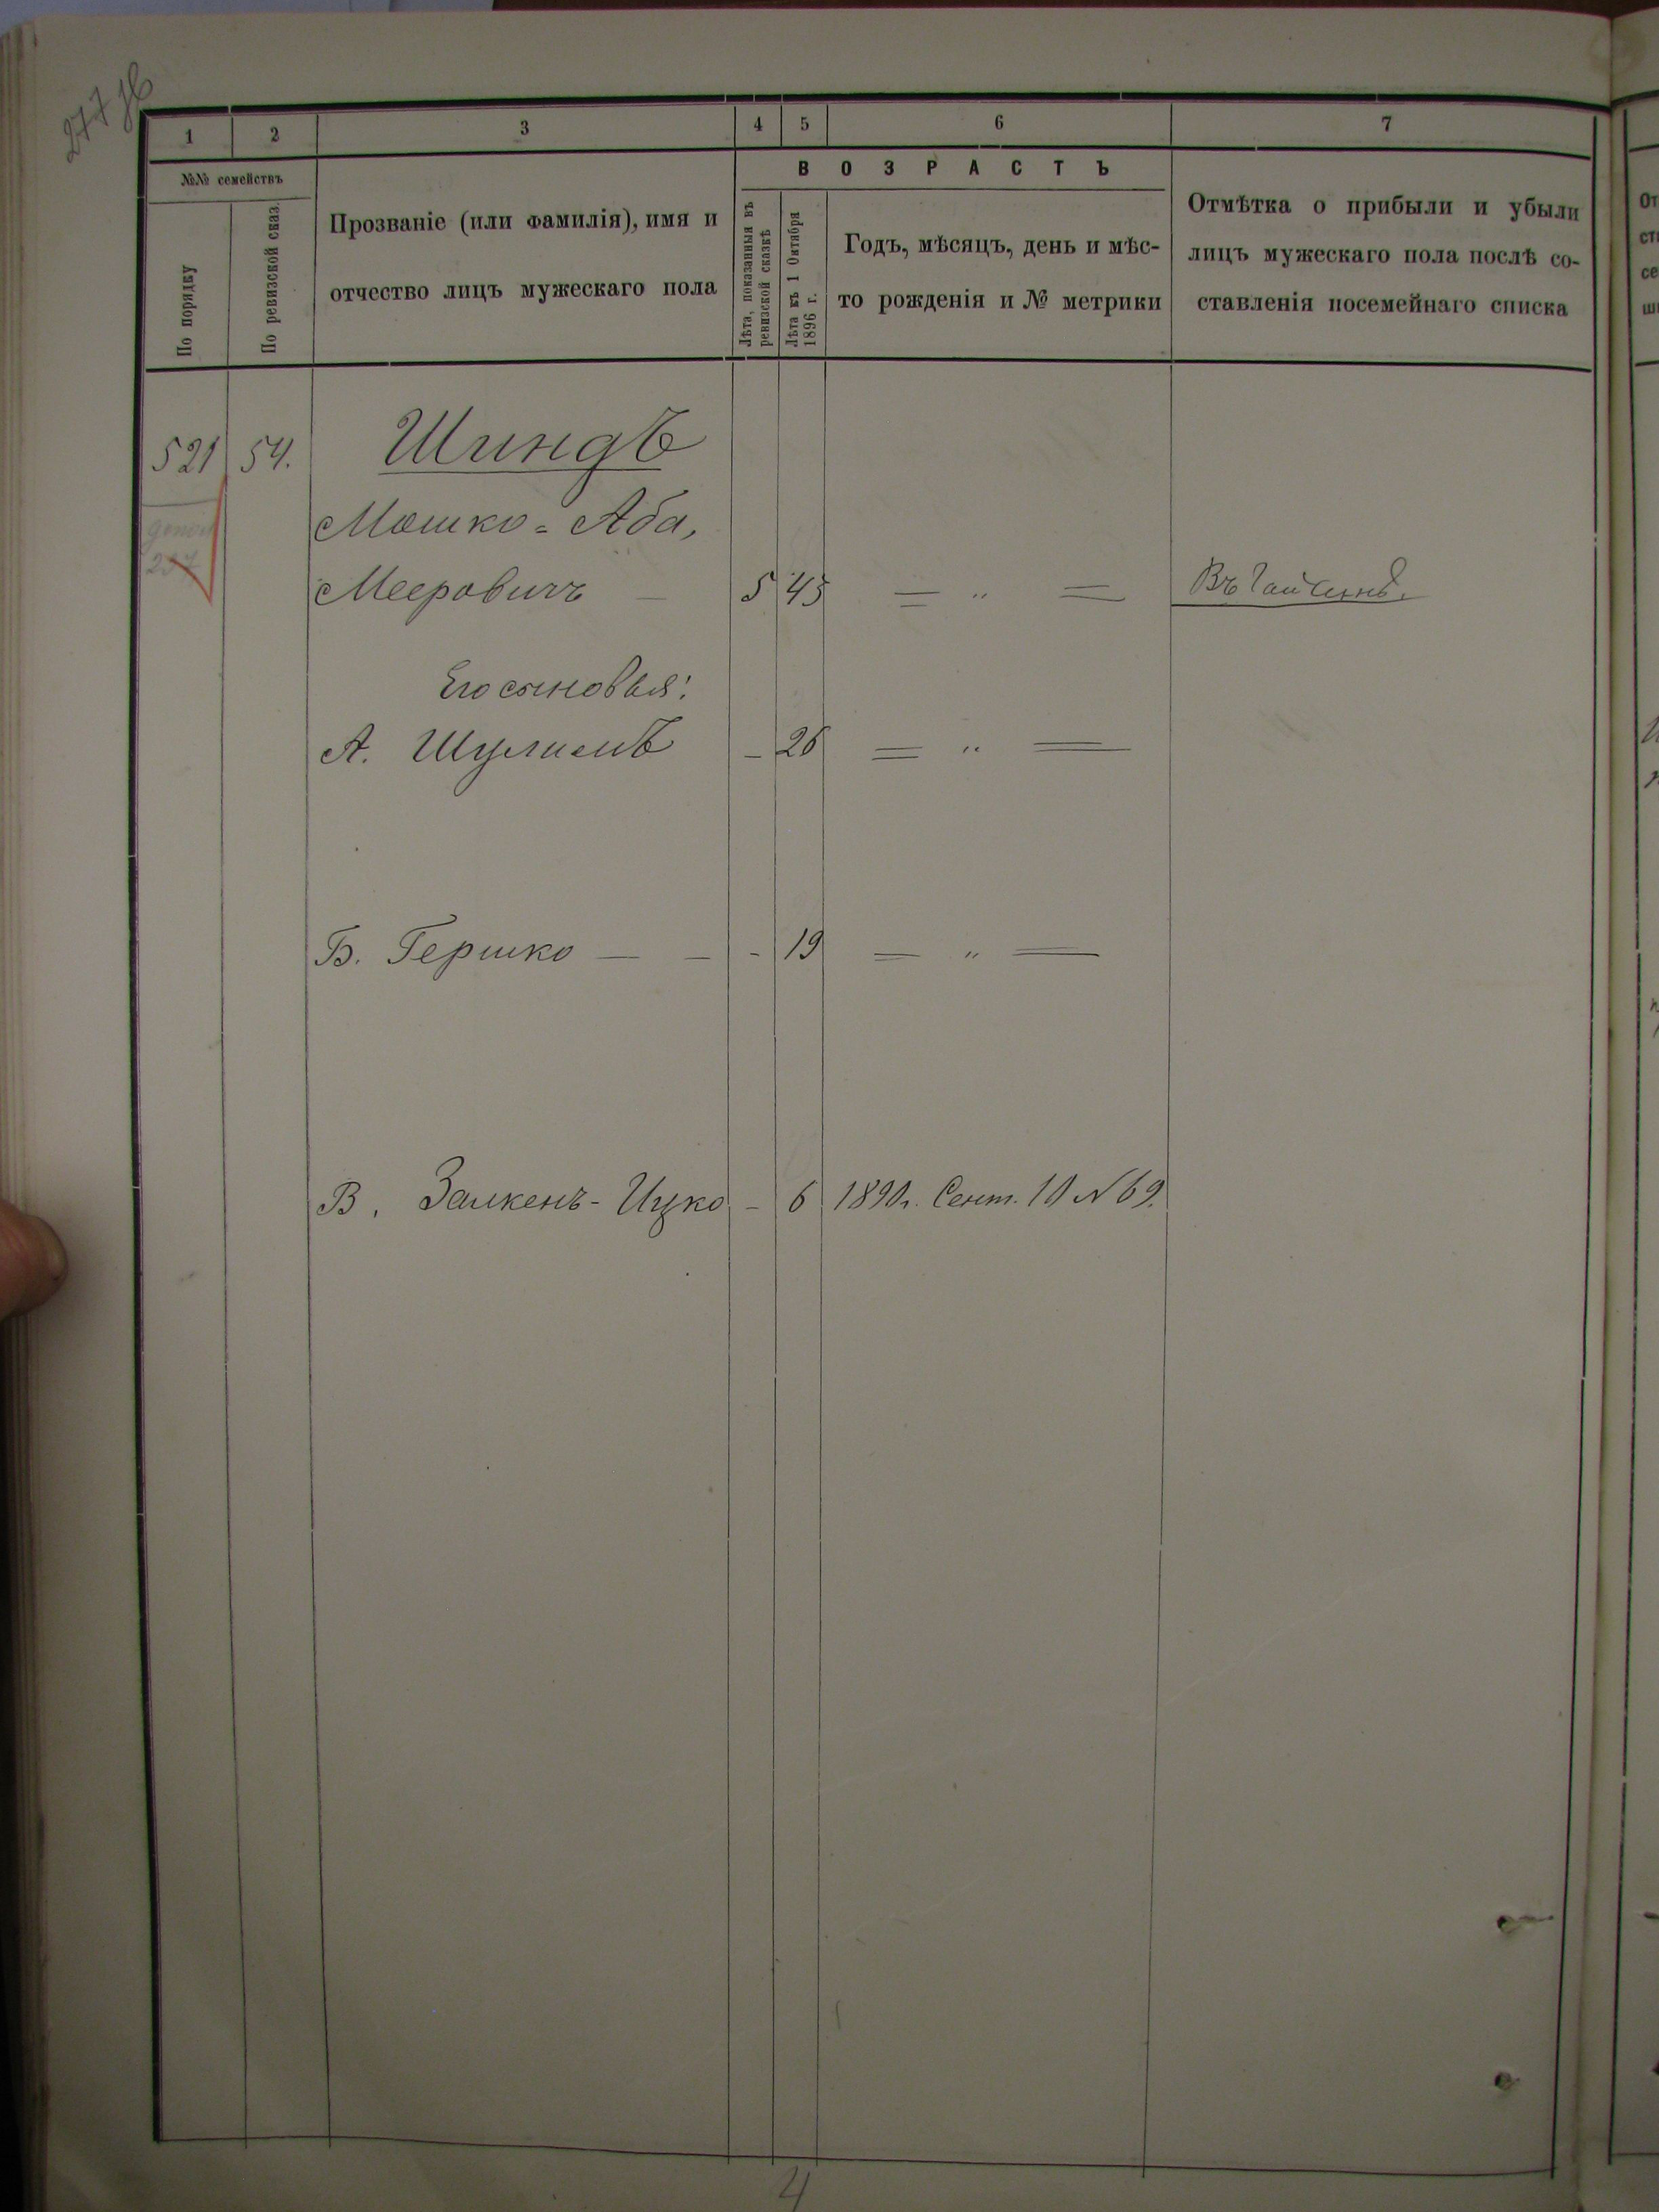 1 2 3 4 5 6 7
№№ семействъ
По порядку
По ревизской сказ.
Прозваніе (или фамилія), имя и
отчество лицъ мужескаго пола
ВОЗРАСТЪ
Лѣта, показанныя въ
ревизской сказкѣ
Лѣта къ 1 Октября
1896 г.
Годъ, мѣсяцъ, день и мѣс-
то рожденія и № метрики
Отмѣтка о прибыли и убыли
лицъ мужескаго пола послѣ со-
ставленія посемейнаго списка
521 54. Шиндъ
Мошко-Аба,
Мееровичъ — 5 45 = " = Въ Гайсинѣ.
Его сыновья:
А. Шулимъ - 26 = " =
Б. Гершко — - - 19 = " =
В. Залкенъ-Ицко - 6 1890г. Сент. 10 № 69.
4